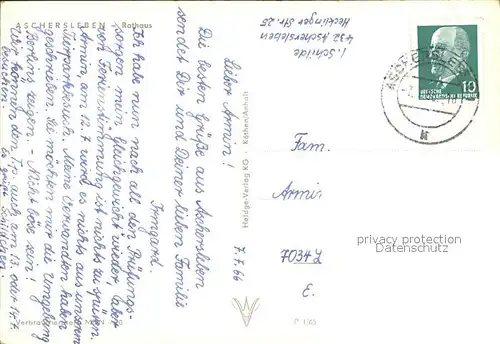 ASCHERSLEBEN Rathaus
I. Schilde
432 Aschersleben
Hecklinger Str. 25
7.7.66
Lieber Armin!
Die besten Grüße aus Aschersleben
sendet Dir und Deiner lieben Familie
Irmgard.
Ich habe nun nach all den Prüfungs-
sorgen mein Gleichgewicht wieder, aber
von Ferienstimmung ist nichts zu spüren.
Armin, am 12.7. wird es nichts aus unserem
Tierparkbesuch. Meine Verwandten haben
geschrieben. Sie möchten mir die Umgebung
Berlins zeigen - Nicht böse sein!
Wir können den T.p. auch am 13. oder 14.7.
besuchen. Es grüßt
Verlag Heldge-Verlag KG · Köthen/Anhalt
P 1/65
ASCHERSLEBEN
10
DEUTSCHE
DEMOKRATISCHE REPUBLIK
Fam.
Armi
E.
privacy protection
Datenschutz